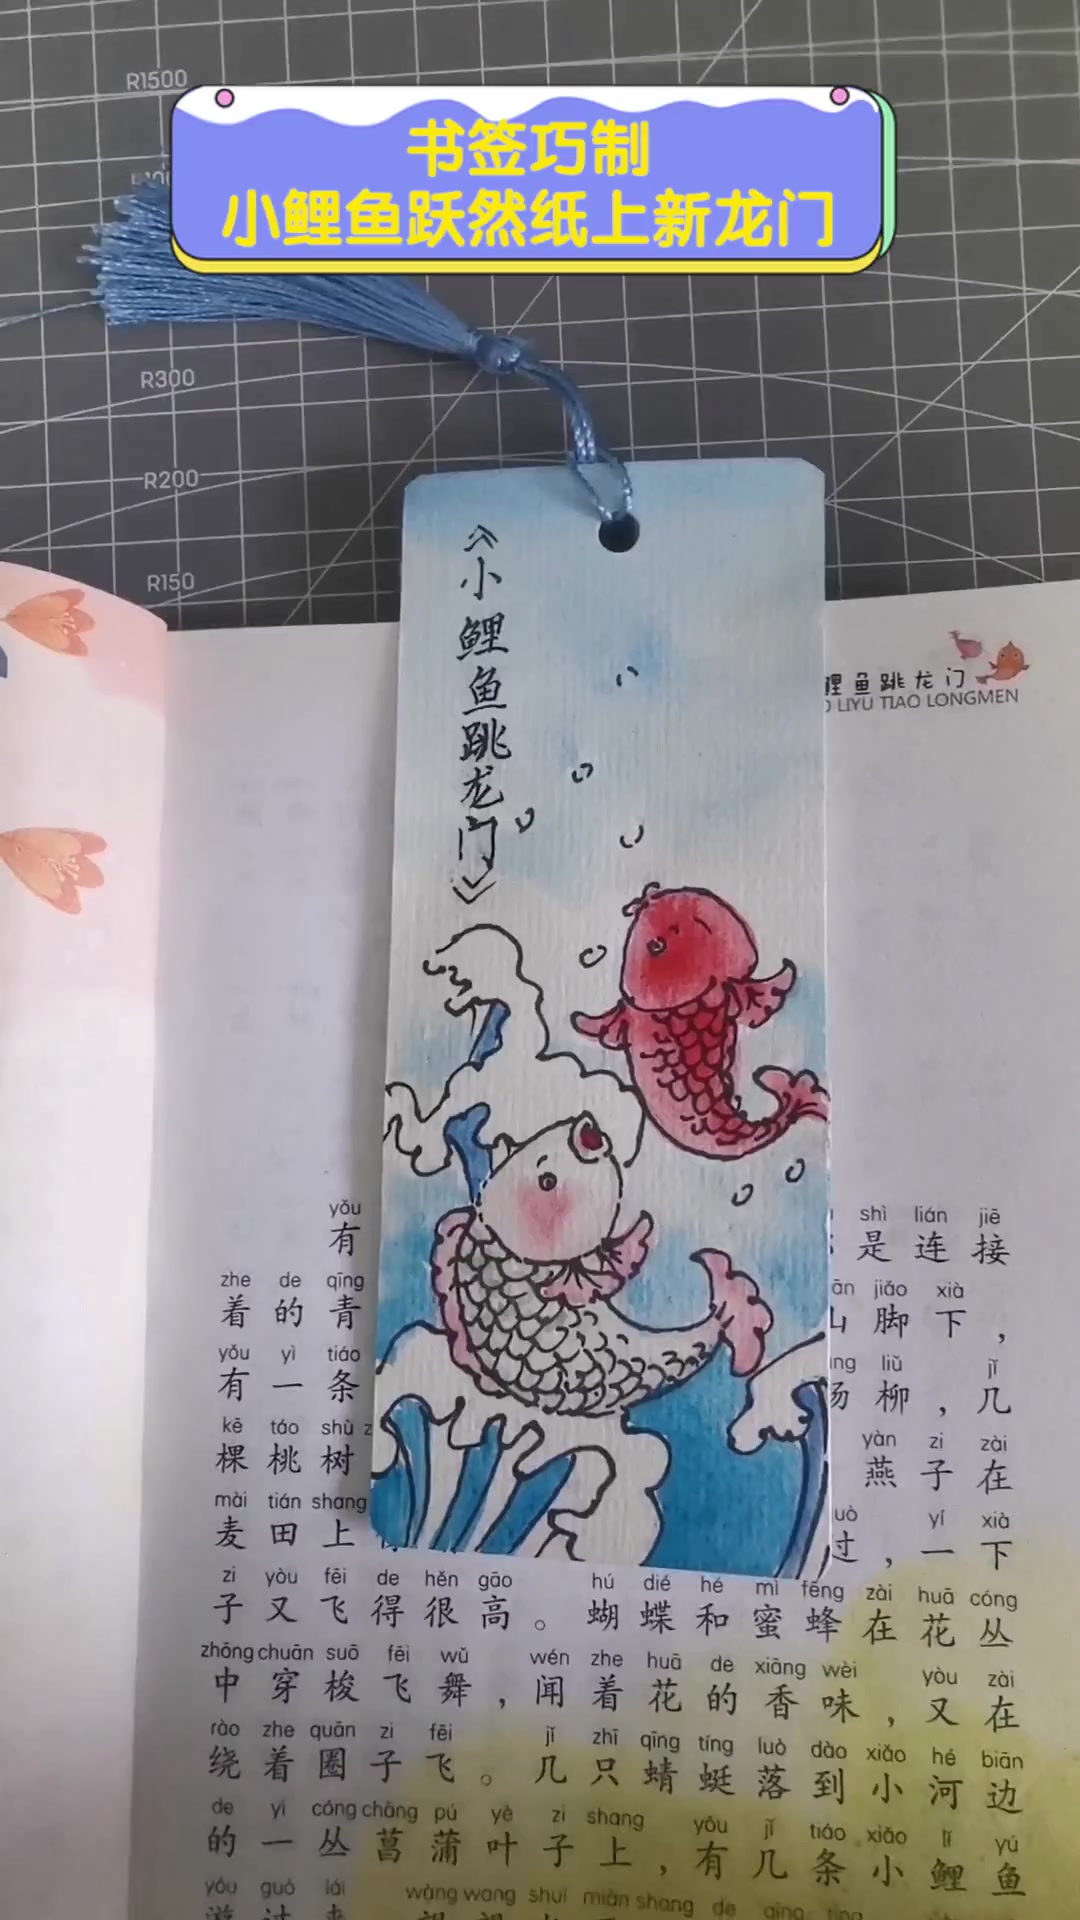 R1500
书签巧制
小鲤鱼跃然纸上新龙门
R300
R200
R150
《小鲤鱼跳龙门》
鲤鱼跳龙门
LIYU TIAO LONGMEN
yǒu shì lián jiē
有 是连接
zhe de qīng jiǎo xià
着的青 脚下，
yǒu yì tiáo liǔ jǐ
有一条 柳，几
kē táo shù yàn zi zài
棵桃树 燕子在
mài tián shang yí xià
麦田上 过，一下
zi yòu fēi de hěn gāo hú dié hé mì fēng zài huā cóng
子又飞得很高。蝴蝶和蜜蜂在花丛
zhōng chuān suō fēi wǔ wén zhe huā de xiāng wèi yòu zài
中穿梭飞舞，闻着花的香味，又在
rào zhe quān zi fēi jǐ zhī qīng tíng luò dào xiǎo hé biān
绕着圈子飞。几只蜻蜓落到小河边
de yì cóng chāng pú yè zi shang yǒu jǐ tiáo xiǎo lǐ yú
的一丛菖蒲叶子上，有几条小鲤鱼
yóu guò lái wàng wang shuǐ miàn shang de qīng tíng
游过来